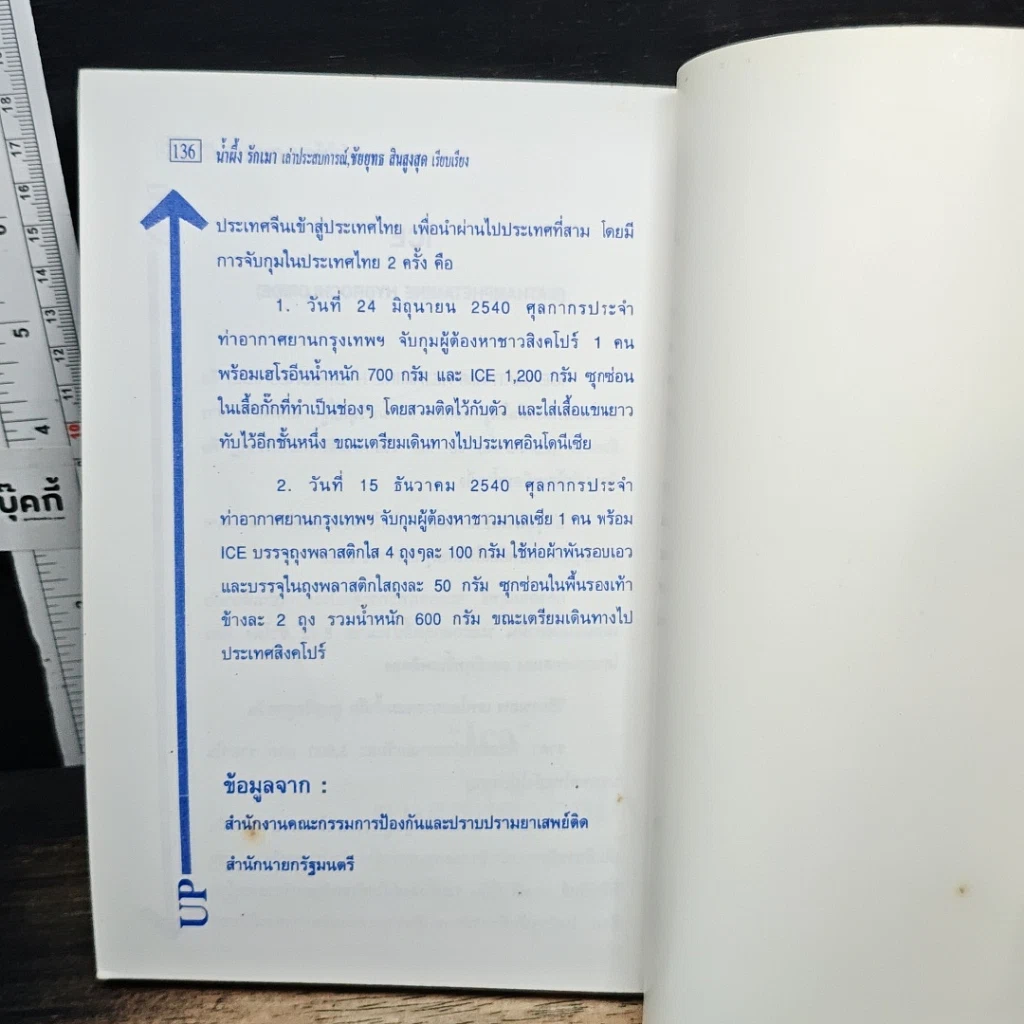 136 น้ำผึ้ง รักเมา เล่าประสบการณ์,ชัยยุทธ สินสูงสุด เรียบเรียง
ประเทศจีนเข้าสู่ประเทศไทย เพื่อนำผ่านไปประเทศที่สาม โดยมี
การจับกุมในประเทศไทย 2 ครั้ง คือ
1. วันที่ 24 มิถุนายน 2540 ศุลกากรประจำ
ท่าอากาศยานกรุงเทพฯ จับกุมผู้ต้องหาชาวสิงคโปร์ 1 คน
พร้อมเฮโรอีนน้ำหนัก 700 กรัม และ ICE 1,200 กรัม ซุกซ่อน
ในเสื้อกั๊กที่ทำเป็นช่องๆ โดยสวมติดไว้กับตัว และใส่เสื้อแขนยาว
ทับไว้อีกชั้นหนึ่ง ขณะเตรียมเดินทางไปประเทศอินโดนีเซีย
2. วันที่ 15 ธันวาคม 2540 ศุลกากรประจำ
ท่าอากาศยานกรุงเทพฯ จับกุมผู้ต้องหาชาวมาเลเซีย 1 คน พร้อม
ICE บรรจุถุงพลาสติกใส 4 ถุงๆละ 100 กรัม ใช้ห่อผ้าพันรอบเอว
และบรรจุในถุงพลาสติกใสถุงละ 50 กรัม ซุกซ่อนในพื้นรองเท้า
ข้างละ 2 ถุง รวมน้ำหนัก 600 กรัม ขณะเตรียมเดินทางไป
ประเทศสิงคโปร์
ข้อมูลจาก :
สำนักงานคณะกรรมการป้องกันและปราบปรามยาเสพย์ติด
สำนักนายกรัฐมนตรี
UP
บุ๊คกี้
18
17
16
15
14
13
12
11
10
5
4